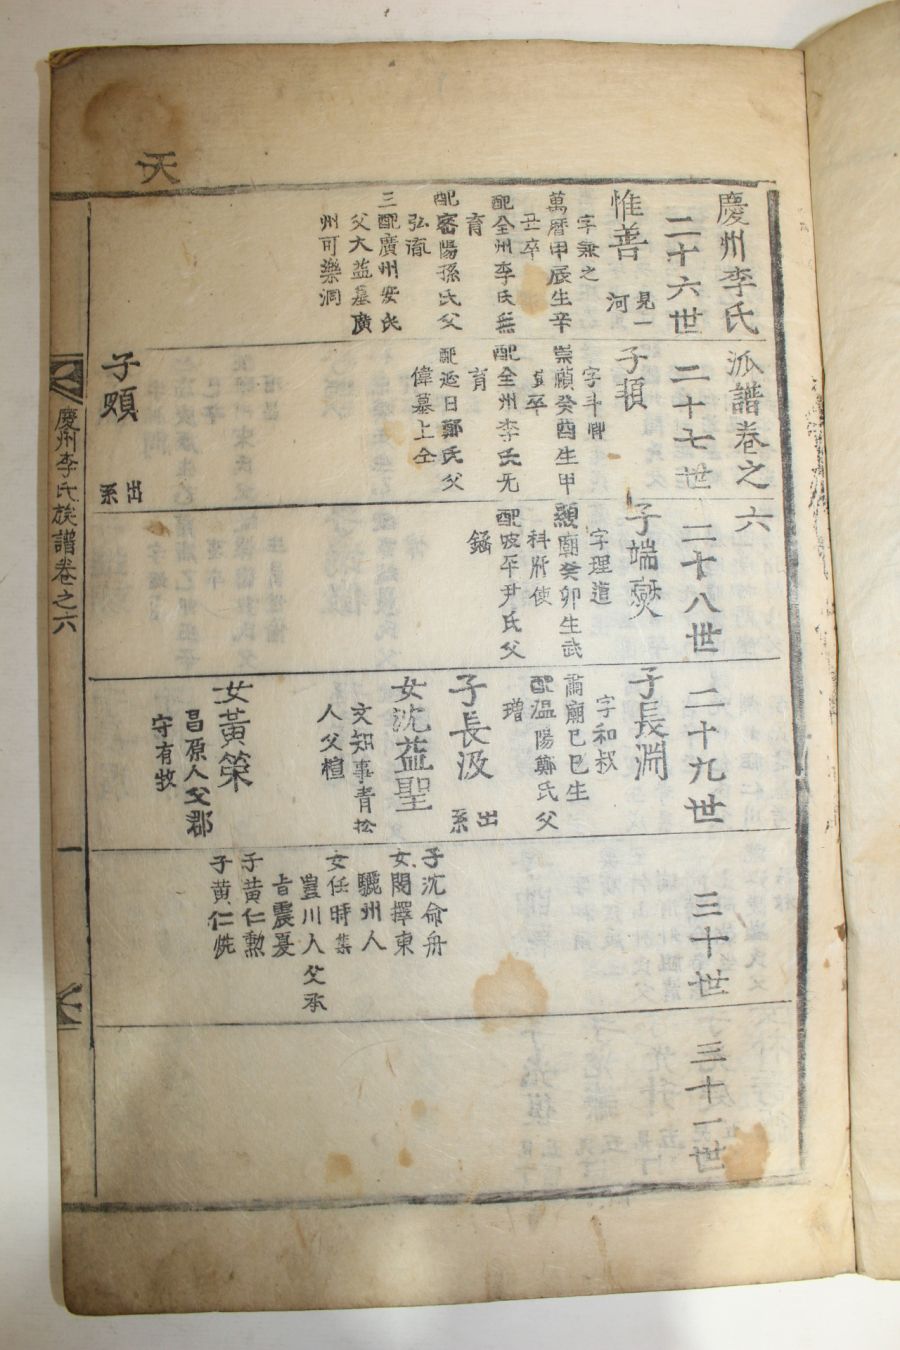 天
慶州李氏派譜卷之六
二十六世
惟善
見一
河
字兼之
萬曆甲辰生辛
丑卒
配全州李氏無
育
配密陽孫氏父
弘
三配廣州安氏
父大益墓廣
州可樂洞
二十七世
子頊
字斗卿
崇禎癸酉生甲
寅卒
配全州李氏无
育
配延日鄭氏父
偉墓上仝
子
出
系
二十八世
子端燮
字理道
顯廟癸卯生武
科府使
配坡平尹氏父
二十九世
子長淵
字和叔
肅廟己巳生
配溫陽鄭氏父
璔
子長汲
出
系
女沈益聖
文知事青松
人父楦
女黃榮
昌原人父郡
守有牧
三十世
子沈命舟
女閔擇東
驪州人
女任時集
豊川人父承
旨震夏
子黃仁勲
子黄仁
三十一世
慶州李氏族譜卷之六
一